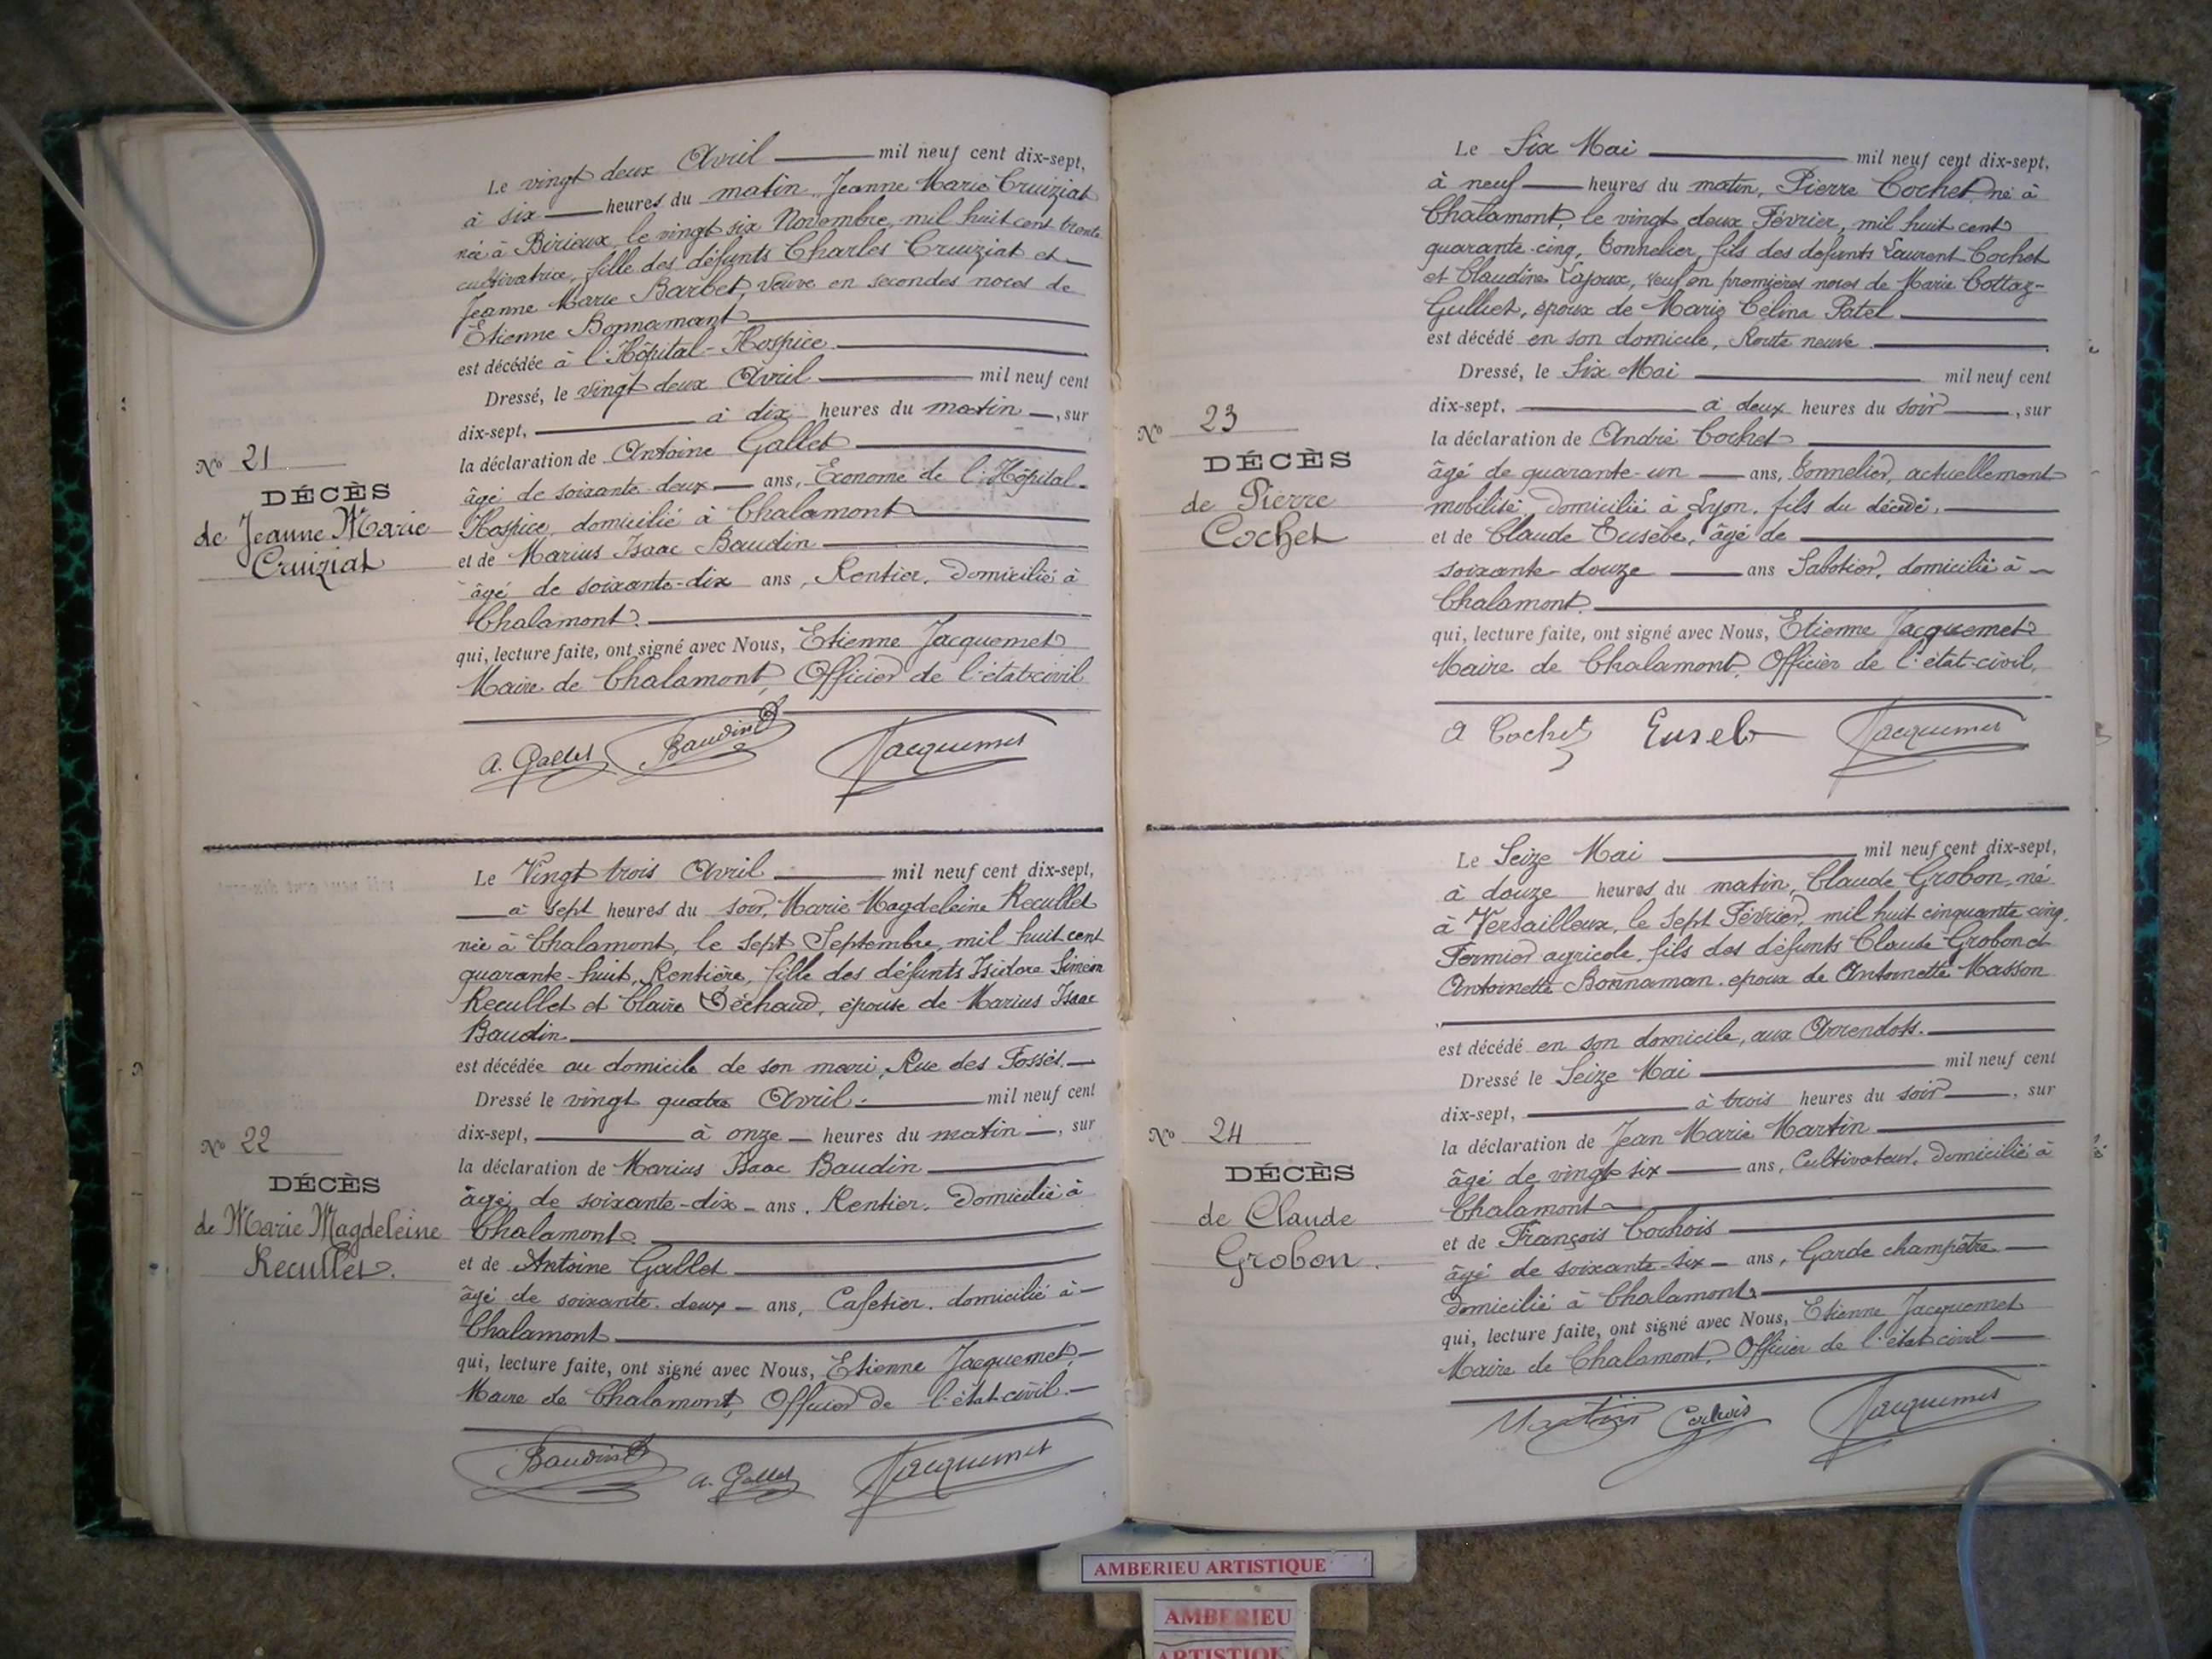 Le vingt deux Avril mil neuf cent dix-sept,
à six heures du matin, Jeanne Marie Cruiziat
née à Birieux, le vingt six Novembre, mil huit cent trente
cultivatrice, fille des défunts Charles Cruiziat et
Jeanne Marie Barbet, veuve en secondes noces de
Etienne Bonnamant
est décédée à l'Hôpital-Hospice.
Dressé, le vingt deux Avril mil neuf cent
dix-sept, à dix heures du matin, sur
la déclaration de Antoine Gallet
âgé de soixante deux ans, Econome de l'Hôpital-
Hospice, domicilié à Chalamont
et de Marius Isaac Baudin
âgé de soixante-dix ans, Rentier, domicilié à
Chalamont.
qui, lecture faite, ont signé avec Nous, Etienne Jacquemet
Maire de Chalamont, Officier de l'état-civil
A. Gallet Baudin Jacquemet
No 21
DÉCÈS
de Jeanne Marie
Cruiziat
Le Vingt trois Avril mil neuf cent dix-sept,
à sept heures du soir, Marie Magdeleine Recullet
née à Chalamont, le sept Septembre, mil huit cent
quarante-huit, Rentière, fille des défunts Isidore Siméon
Recullet et Claire Déchaud, épouse de Marius Isaac
Baudin.
est décédée au domicile de son mari, Rue des Fossés.
Dressé le vingt quatre Avril. mil neuf cent
dix-sept, à onze heures du matin, sur
la déclaration de Marius Isaac Baudin
âgé de soixante-dix ans, Rentier, domicilié à
Chalamont.
et de Antoine Gallet
âgé de soixante-deux ans, Cafetier, domicilié à
Chalamont
qui, lecture faite, ont signé avec Nous, Etienne Jacquemet,
Maire de Chalamont, Officier de l'état-civil.
Baudin A. Gallet Jacquemet
No 22
DÉCÈS
de Marie Magdeleine
Recullet.
Le Six Mai mil neuf cent dix-sept,
à neuf heures du matin, Pierre Cochet, né à
Chalamont, le vingt deux Février, mil huit cent
quarante-cinq, Tonnelier, fils des défunts Laurent Cochet
et Claudine Lajoux, veuf en premières noces de Marie Cottaz-
Gulliet, époux de Marie Célina Patel
est décédé en son domicile, Route neuve.
Dressé, le Six Mai mil neuf cent
dix-sept, à deux heures du soir, sur
la déclaration de André Cochet
âgé de quarante-un ans, Tonnelier, actuellement
mobilisé, domicilié à Lyon, fils du décédé,
et de Claude Eusèbe, âgé de
soixante-douze ans Sabotier, domicilié à
Chalamont.
qui, lecture faite, ont signé avec Nous, Etienne Jacquemet
Maire de Chalamont, Officier de l'état-civil,
A Cochet Euseb Jacquemet
No 23
DÉCÈS
de Pierre
Cochet
Le Seize Mai mil neuf cent dix-sept,
à douze heures du matin, Claude Grobon, né
à Versailleux, le sept Février, mil huit cinquante cinq,
Fermier agricole, fils des défunts Claude Grobon et
Antoinette Bonnaman, époux de Antoinette Masson
est décédé en son domicile, aux Arrendots.
Dressé le Seize Mai mil neuf cent
dix-sept, à trois heures du soir, sur
la déclaration de Jean Marie Martin
âgé de vingt-six ans, Cultivateur, domicilié à
Chalamont
et de François Corhois
âgé de soixante-six ans, Garde champêtre
domicilié à Chalamont
qui, lecture faite, ont signé avec Nous, Etienne Jacquemet
Maire de Chalamont, Officier de l'état civil
Martin Corhois Jacquemet
No 24
DÉCÈS
de Claude
Grobon.
AMBERIEU ARTISTIQUE
AMBERIEU